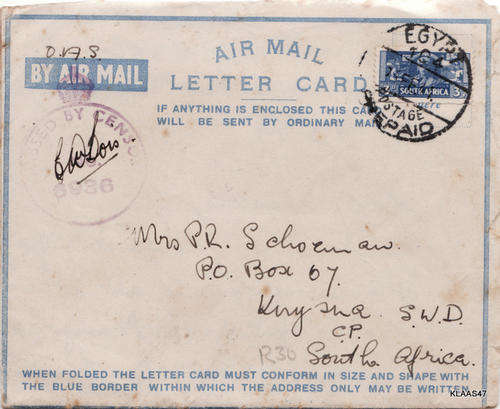 O.A.S
BY AIR MAIL
AIR MAIL
LETTER CARD
IF ANYTHING IS ENCLOSED THIS CARD
WILL BE SENT BY ORDINARY MAIL
EGYPT
POSTAGE
PREPAID
SOUTH AFRICA
PASSED BY CENSOR
6936
Mrs P.R. Schoeman.
P.O. Box 67.
Knysna S.W.D.
C.P.
R30
South Africa.
WHEN FOLDED THE LETTER CARD MUST CONFORM IN SIZE AND SHAPE WITH
THE BLUE BORDER WITHIN WHICH THE ADDRESS ONLY MAY BE WRITTEN
KLAAS47